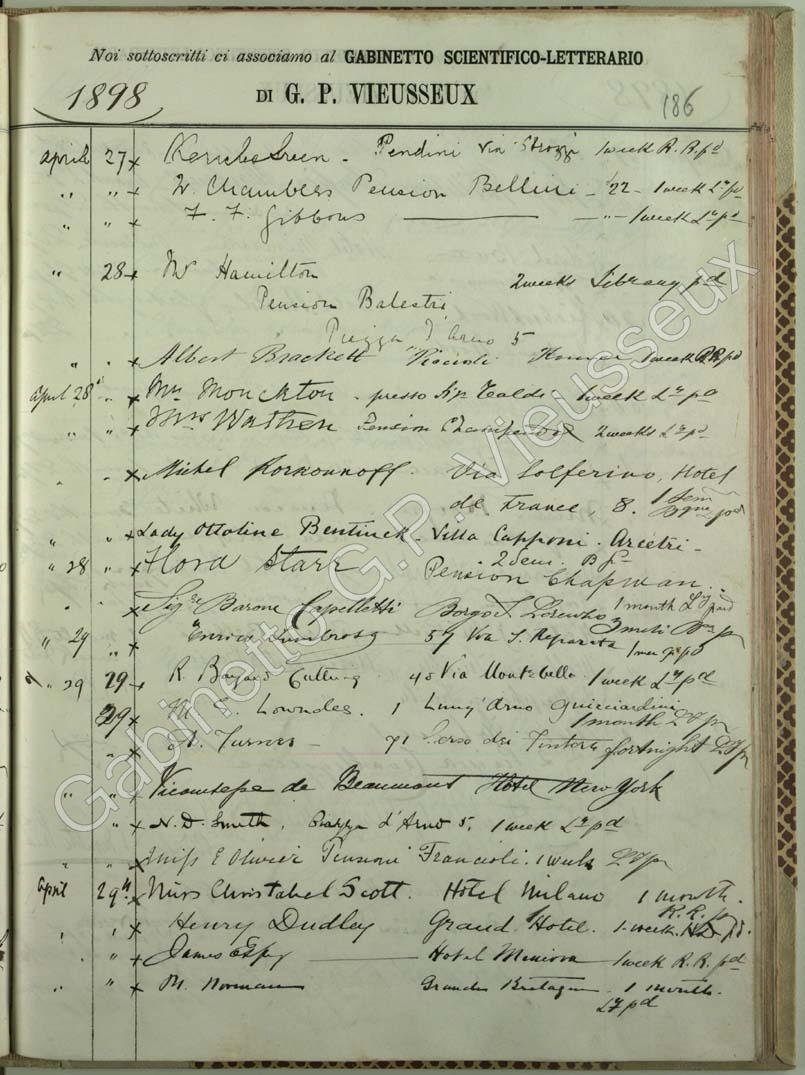 Noi sottoscritti ci associamo al GABINETTO SCIENTIFICO-LETTERARIO
DI G. P. VIEUSSEUX
1898
186
April 27 x Pendini Via Strozzi 1 week R. R. pd
" " x W. Chambers Pension Bellini - 22 - 1 week Ly pd
" " x F. F. Gibbons — " - 1 week Ly pd
" 28 x Mr Hamilton 2 weeks Library pd
Pension Balestri
Piazza d'Arno 5
" " x Albert Brackett 1 week R R. pd
April 28 " x Mrs Monckton - presso Sig 1 week Ly pd
" " x Mrs Wathen Pension 2 weeks Ly pd
" x Michel Korkounoff. Via Solferino, Hotel
de France, 8. 1 Sem
pd
" " x Lady Ottoline Bentinck - Villa Capponi - Arcetri -
2 Sem.
" 28 x Flora Starr Pension Chapman.
" " x Sigre Barone Capelletti Borgo S. Lorenzo 1 month Ly paid
" 29 " Enrico Lumbroso 54 Via S. Reparata
" 29 29 x R. Bayard Cutting 40 Via Montebello 1 week Ly pd
29 x Lowndes. 1 Lung'Arno Guicciardini
1 month Ly
" x Turner - 71 Corso dei Tintori fortnight Ly
" " x Vicomtesse de Beaumont Hotel New York
" x N. D. Smith, Piazza d'Arno 5, 1 week Ly pd
" " x Miss E Olivier Pensione Francioli. 1 week Ly
April 29th x Miss Christabel Scott. Hotel Milano 1 month.
R. R. p
" " x Henry Dudley Grand Hotel. 1 week pd.
" " x James Espy — Hotel Minerva 1 week R. R. pd
" " x M. Norman Grande Bretagne. 1 month.
Ly pd
Gabinetto G.P. Vieusseux